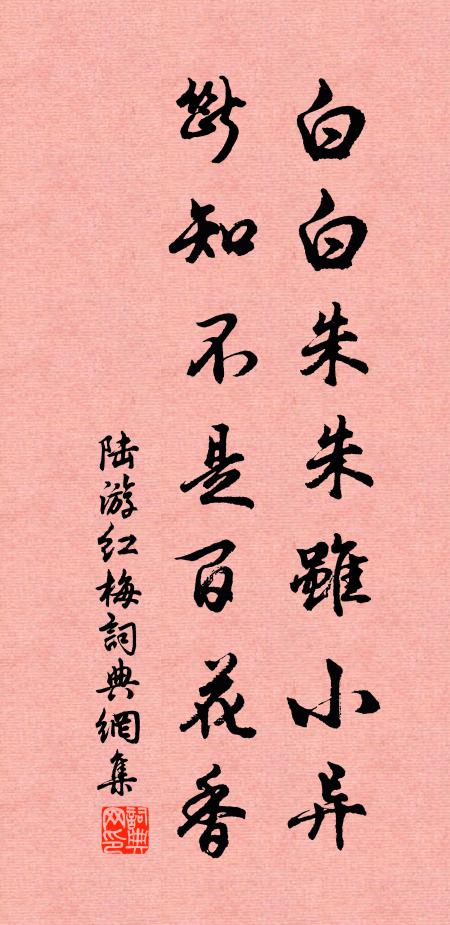 白白朱朱雖小异
斷知不是百花香
陆游红梅詞典網集
詞典网印